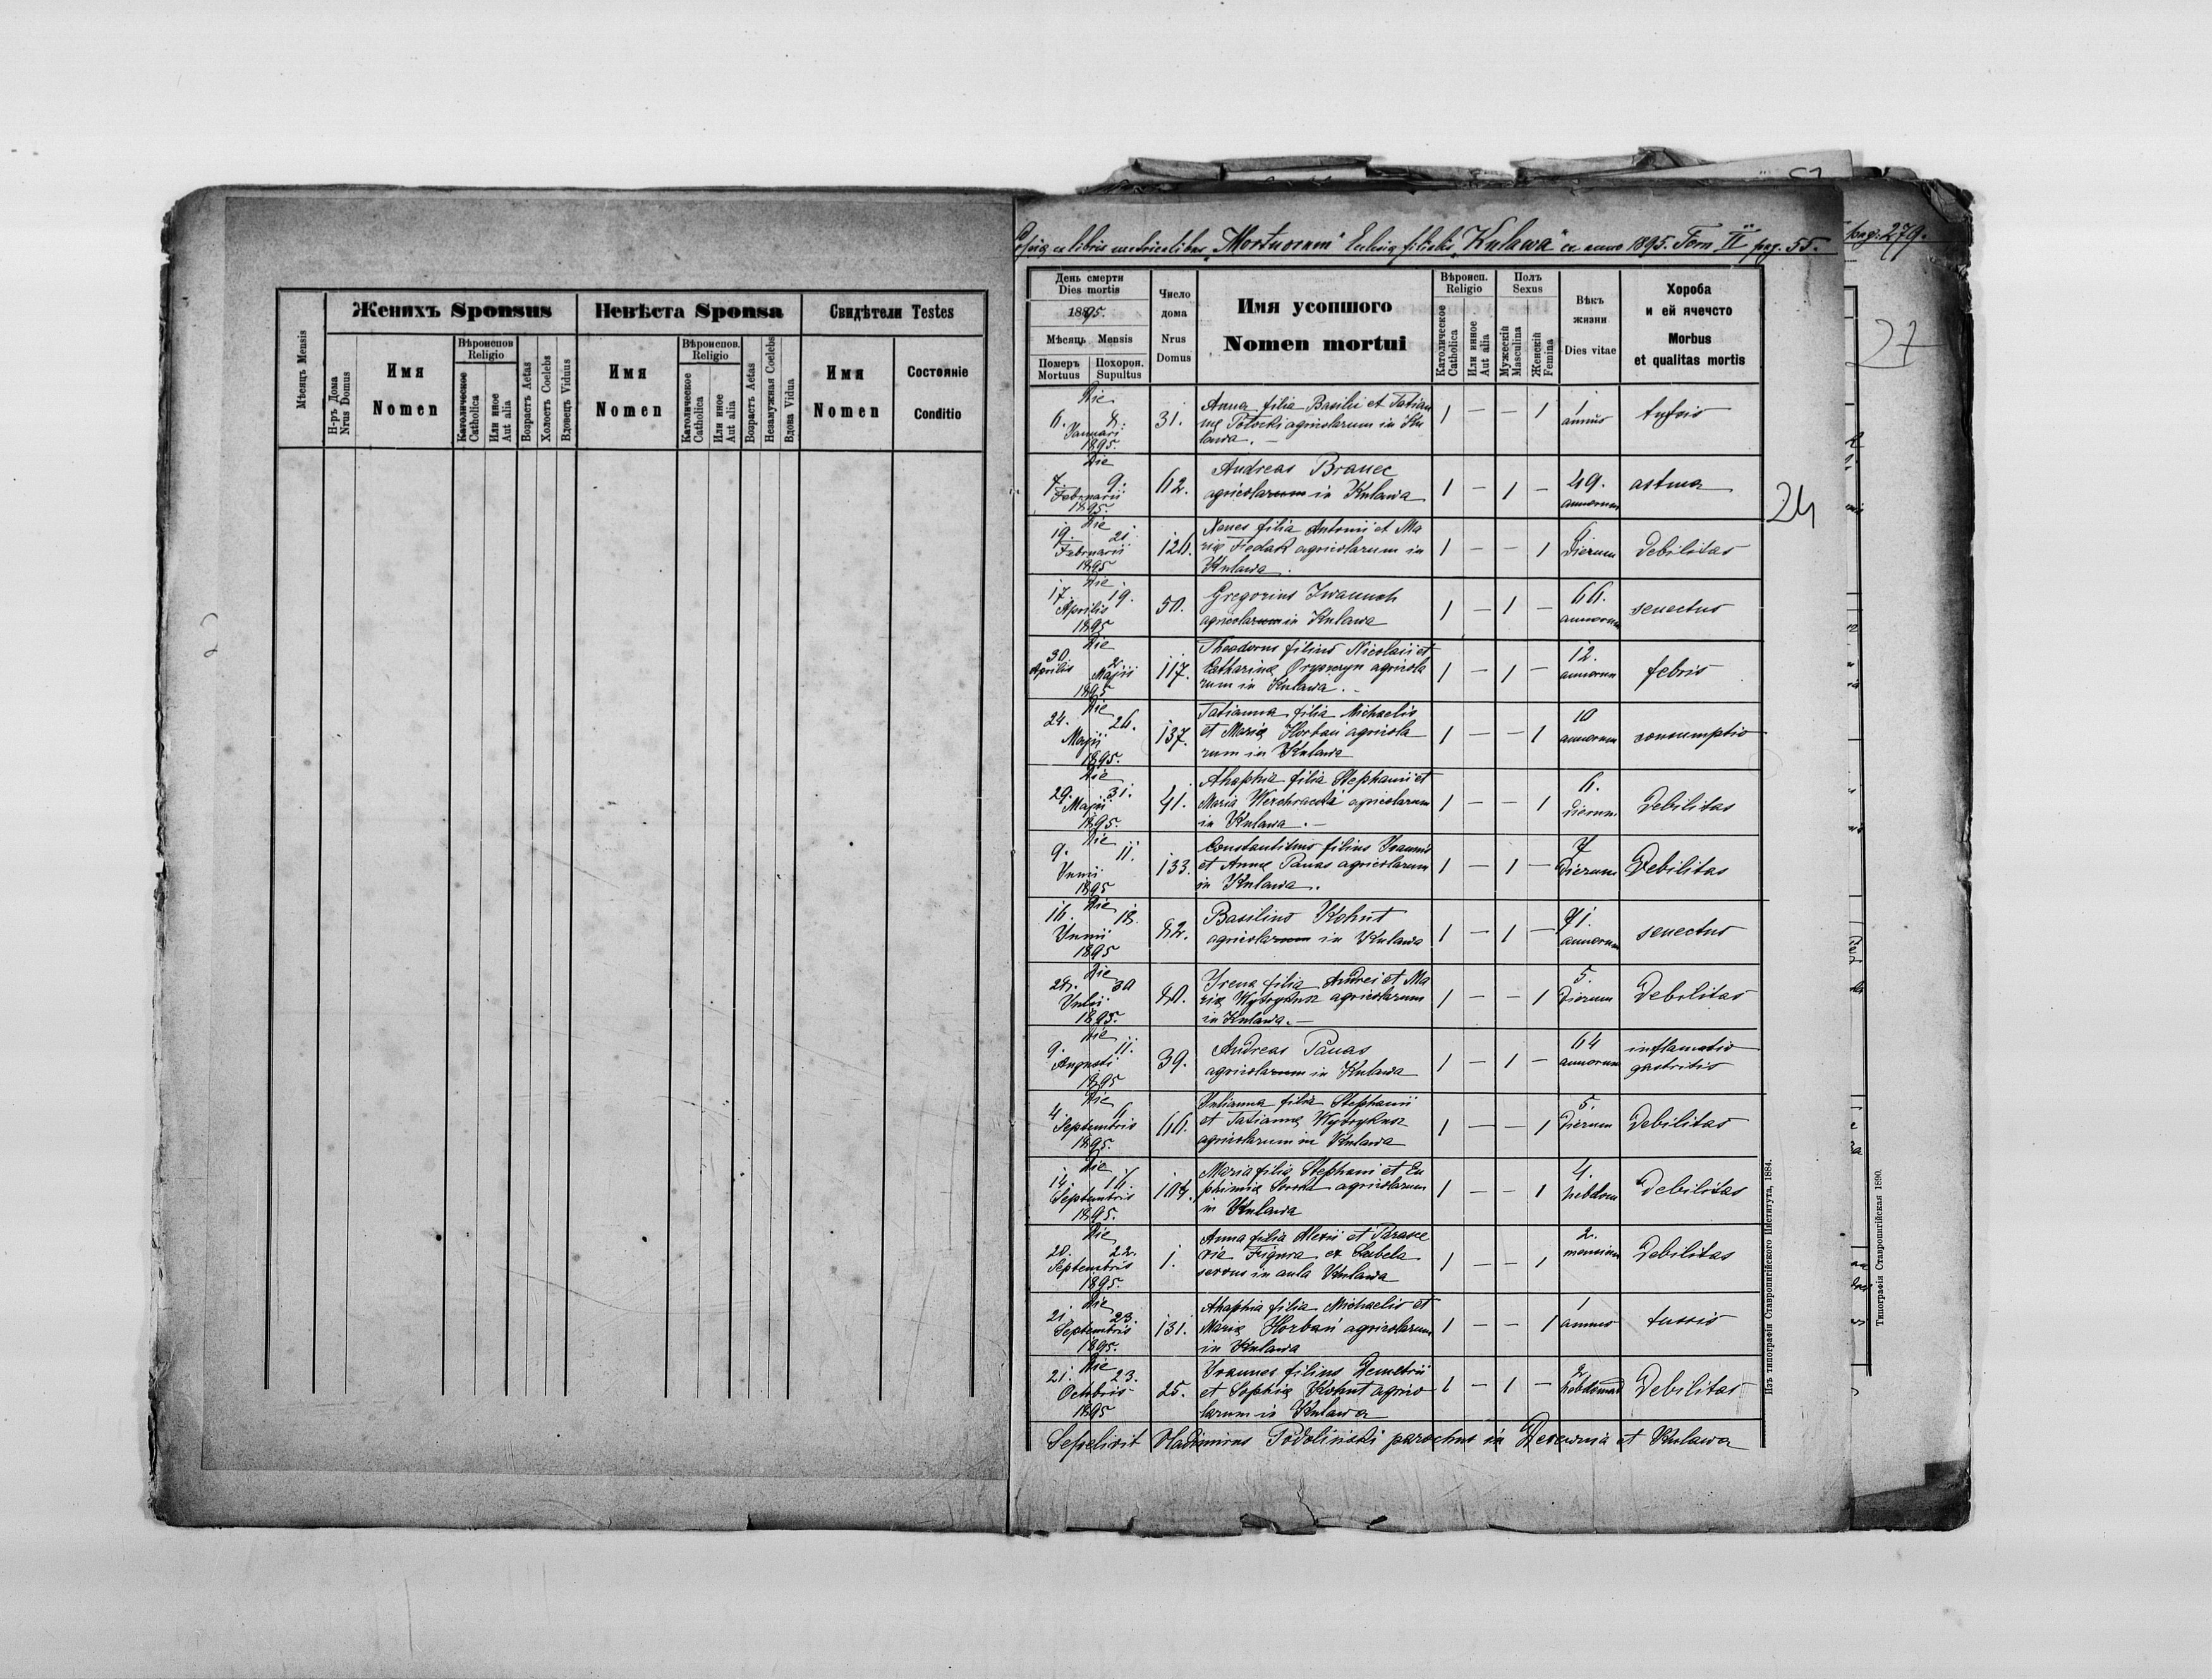 Мѣсяцъ Mensis
Женихъ Sponsus
Невѣста Sponsa
Свидѣтели Testes
Н-ръ Дома Nrus Domus
Имя
Nomen
Вѣроиспов.
Religio
Католическое Catholica
Или иное Aut alia
Возрастъ Aetas
Холостъ Coelebs
Вдовецъ Viduus
Имя
Nomen
Вѣроиспов.
Religio
Католическое Catholica
Или иное Aut alia
Возрастъ Aetas
Незамужная Coelebs
Вдова Vidua
Имя
Nomen
Состояніе
Conditio
Copia ex libris metricalibus "Mortuorum" Ecclesiæ filialis "Kulawa" ex anno 1895. Tom II pag. 55.
pag. 279.
27
24
День смерти
Dies mortis
1895.
Мѣсяць Mensis
Померъ Mortuus
Похорон. Supultus
Число дома
Nrus Domus
Имя усопшого
Nomen mortui
Вѣроисп.
Religio
Католическое Catholica
Или инное Aut alia
Полъ
Sexus
Мужескій Masculina
Женскій Femina
Вѣкъ жизни
Dies vitae
Хороба
и ей ячечсто
Morbus
et qualitas mortis
Die
6. 8. 31. Anna filia Basilii et Tatian 1 — — 1 1
Januari næ Potocki agricolarum in Ku annus
1895. lawa. —
Die
7. 9. 62. Andreas Branec 1 — 1 — 49. astma
Februarii agricolarum in Kulawa annorum
1895.
Die
19. 21. 126. Filia Antonii et Ma 1 — — 1 dierum Debilitas
Februarii riæ Fedak agricolarum in
1895 Kulawa.
Die
17. 19. 50. Gregorius Iwanuch 1 — 1 — 66. senectus
Aprilis agricolarum in Kulawa annorum
1895
Die
30. 2. 117. Theodorus filius Nicolaii et 1 — 1 — 12. febris
Aprilis Majii Catharinæ agricola annorum
1895 rum in Kulawa. —
Die
24. 26. 137. Tatianna filia Michaelis 1 — — 1 10 consumptio
Majii et Mariæ Horbań agricola annorum
1895. rum in Kulawa
Die
29. 31. 41. Ahaphia filia Stephani et 1 — — 1 6. Debilitas
Majii Maria agricolarum dierum
1895. in Kulawa. —
Die
9. 11. 133. Constantinus filius Ioannis 1 — 1 — 7 Debilitas
Junii et Annæ Panas agricolarum dierum
1895 in Kulawa.
Die
16. 18. 82. Basilius Kohut 1 — 1 — 71. senectus
Junii agricolarum in Kulawa annorum
1895
Die
28. 30 80. Irena filia Andrei et Ma 1 — — 1 5. Debilitas
Julii riæ Wytrykusz agricolarum dierum
1895. in Kulawa. —
Die
9. 11. 39. Andreas Panas 1 — 1 — 64 inflamatio
Augusti agricolarum in Kulawa annorum gastritis
1895
Die
4. 6 66. Julianna filia Stephani 1 — — 1 5. Debilitas
Septembris et Tatiannæ Wytrykusz dierum
1895. agricolarum in Kulawa
Die
14. 16. Maria filia Stephani et Eu 1 — — 1 4. Debilitas
Septembris phimiæ agricolarum hebdom
1895. in Kulawa
Die
20. 22. 1. Anna filia Alexii et Parasce 1 — — 1 2. Debilitas
Septembris via Figura ex Lubela mensium
1895. servus in aula Kulawa
Die
21. 23. 131. Ahaphia filia Michaelis et 1 — — 1 1 tussis
Septembris Mariæ Horbań agricolarum annus
1895. in Kulawa
Die
21. 23. 25. Ioannes filius Demetrii 1 — 1 — 2 Debilitas
Octobris et Sophiæ Kohut agrico hebdomad
1895 larum in Kulawa
Sepelivit Vladimirus Podoliński parochus in Derewnia et Kulawa
Изъ типографіи Ставропигійского Института, 1884.
Типографія Ставропигійская 1890.